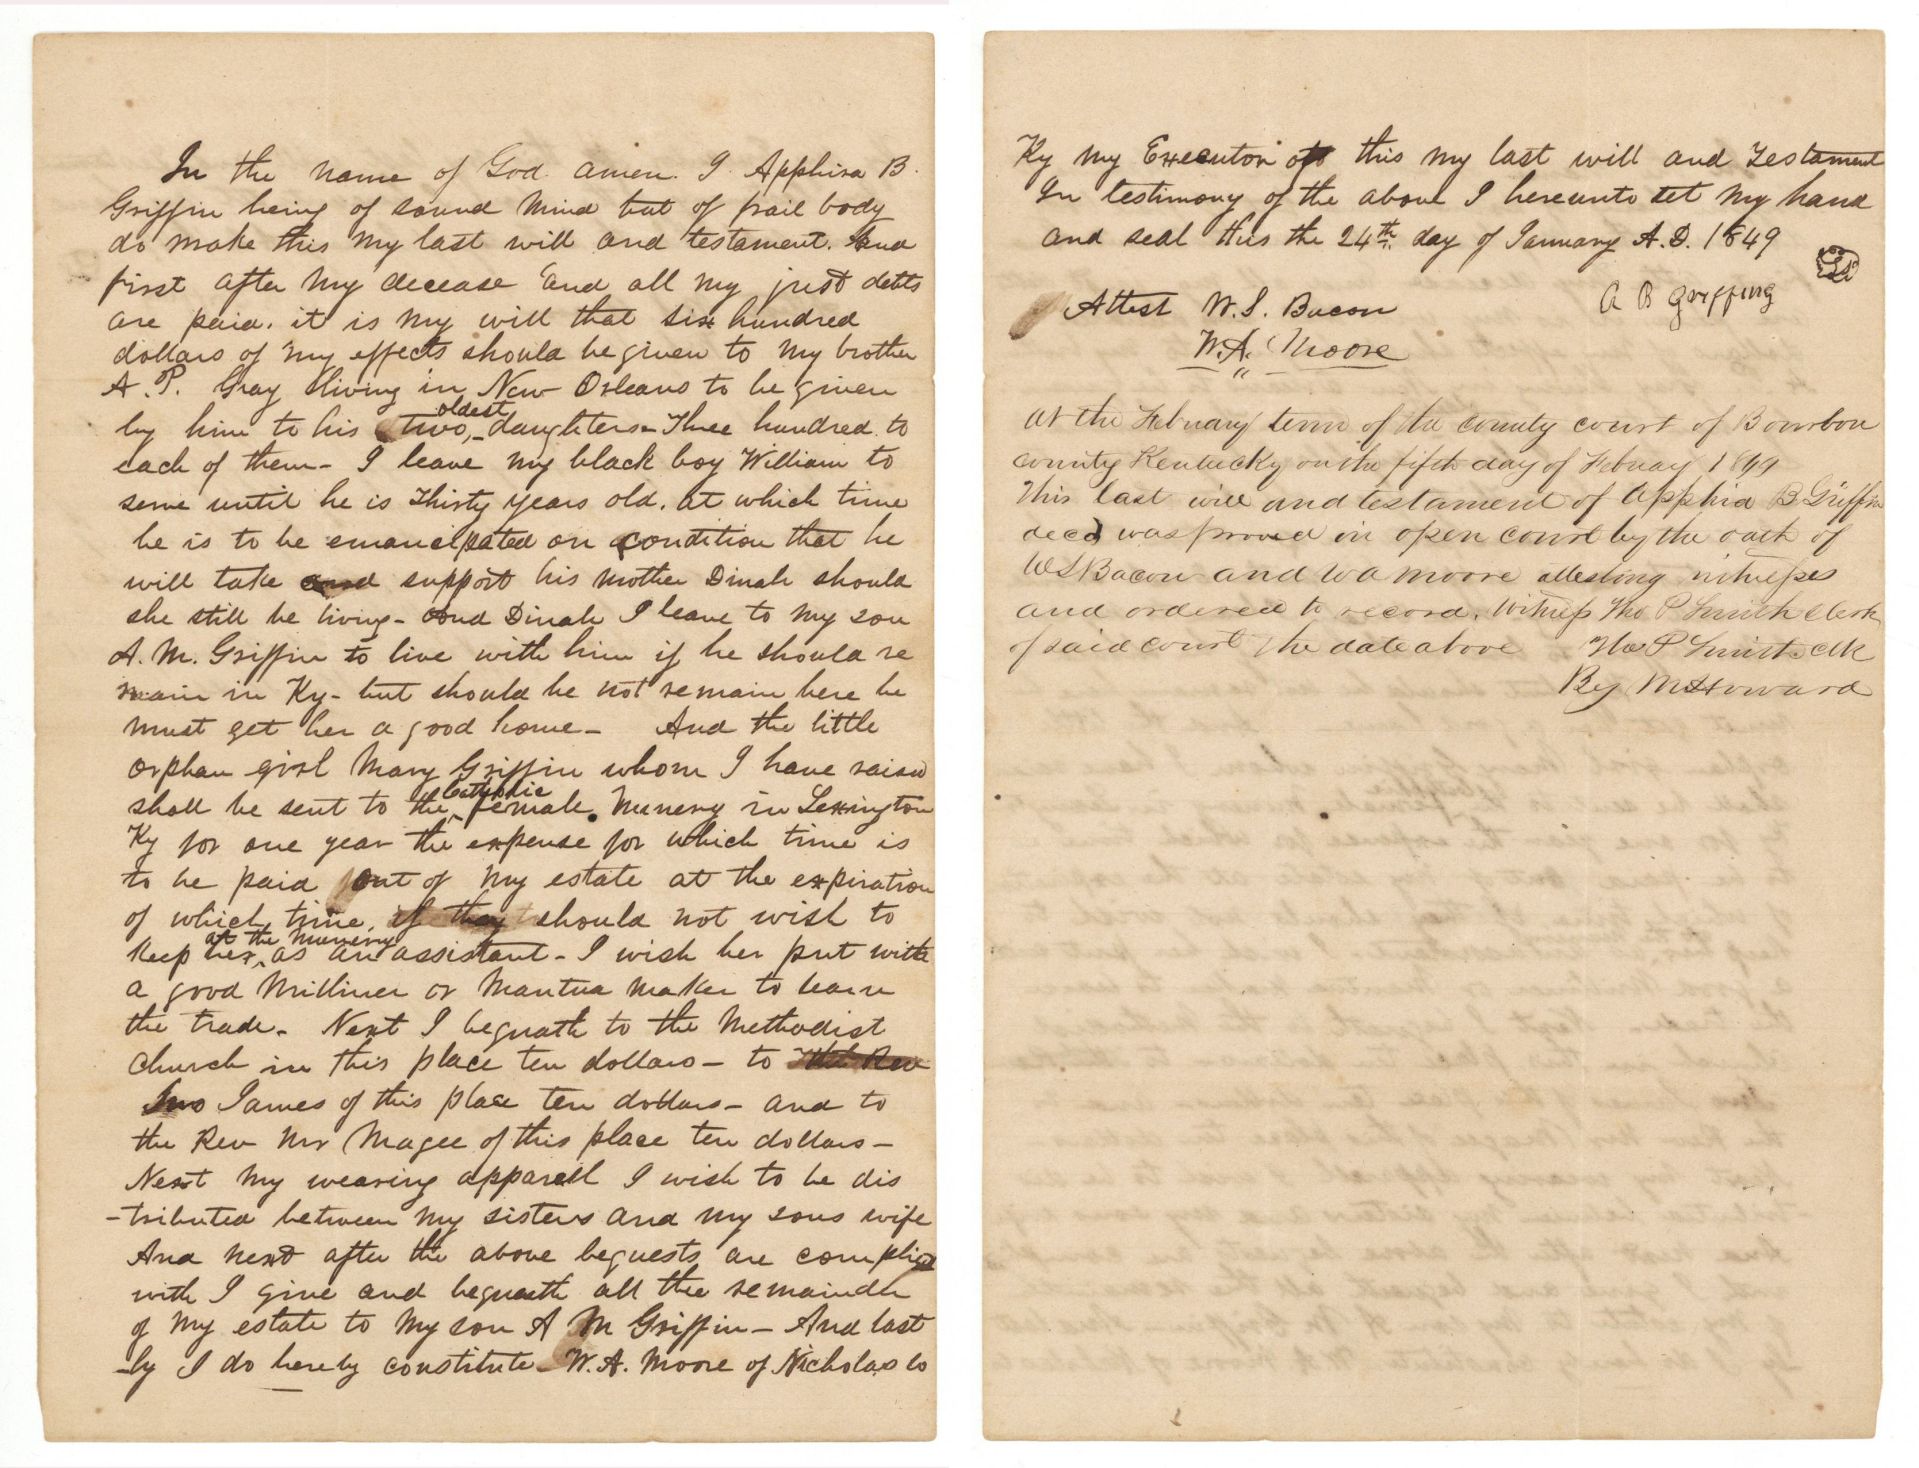 In the name of God amen. I Apphira B.
Griffin being of sound mind but of frail body
do make this my last will and testament. And
first after my decease and all my just debts
are paid. it is my will that six hundred
dollars of my effects should be given to my brother
A. P. Gray living in New Orleans to be given
oldest
by him to his two, daughters – Three hundred to
each of them – I leave my black boy William to
serve until he is thirty years old. at which time
he is to be emancipated on condition that he
will take and support his mother Dinah should
she still be living – and Dinah I leave to my son
A. M. Griffin to live with him if he should re
main in Ky – but should he not remain here he
must get her a good home – And the little
orphan girl Mary Griffin whom I have raised
Catholic
shall be sent to the female Nunery in Lexington
Ky for one year the expense for which time is
to be paid out of my estate at the expiration
of which time, if they should not wish to
at the nunery
keep her as an assistant – I wish her put with
a good Milliner or Mantua maker to learn
the trade – Next I bequath to the Methodist
church in this place ten dollars – to the Rev
Jno James of this place ten dollars – and to
the Rev Mr Magee of this place ten dollars –
Next my wearing apparell I wish to be dis
-tributed between my sisters and my sons wife
And next after the above bequests are complied
with I give and bequeath all the remainder
of my estate to my son A M Griffin – And last
-ly I do hereby constitute W. A. Moore of Nicholas co
Ky my Executor of this my last will and Testament
In testimony of the above I hereunto set my hand
and seal this the 24th day of January A.D. 1849
A B Griffing
Attest W. S. Bacon
W. A. Moore
At the February term of the county court of Bourbon
county Kentucky on the fifth day of Febuay 1849
This last will and testament of Apphia B Griffin
decd was proved in open court by the oath of
W S Bacon and W A Moore attesting witnesses
and ordered to record. Witness Tho P Smith Clerk
of said court the date above Tho P Smith Clk
By M Howard